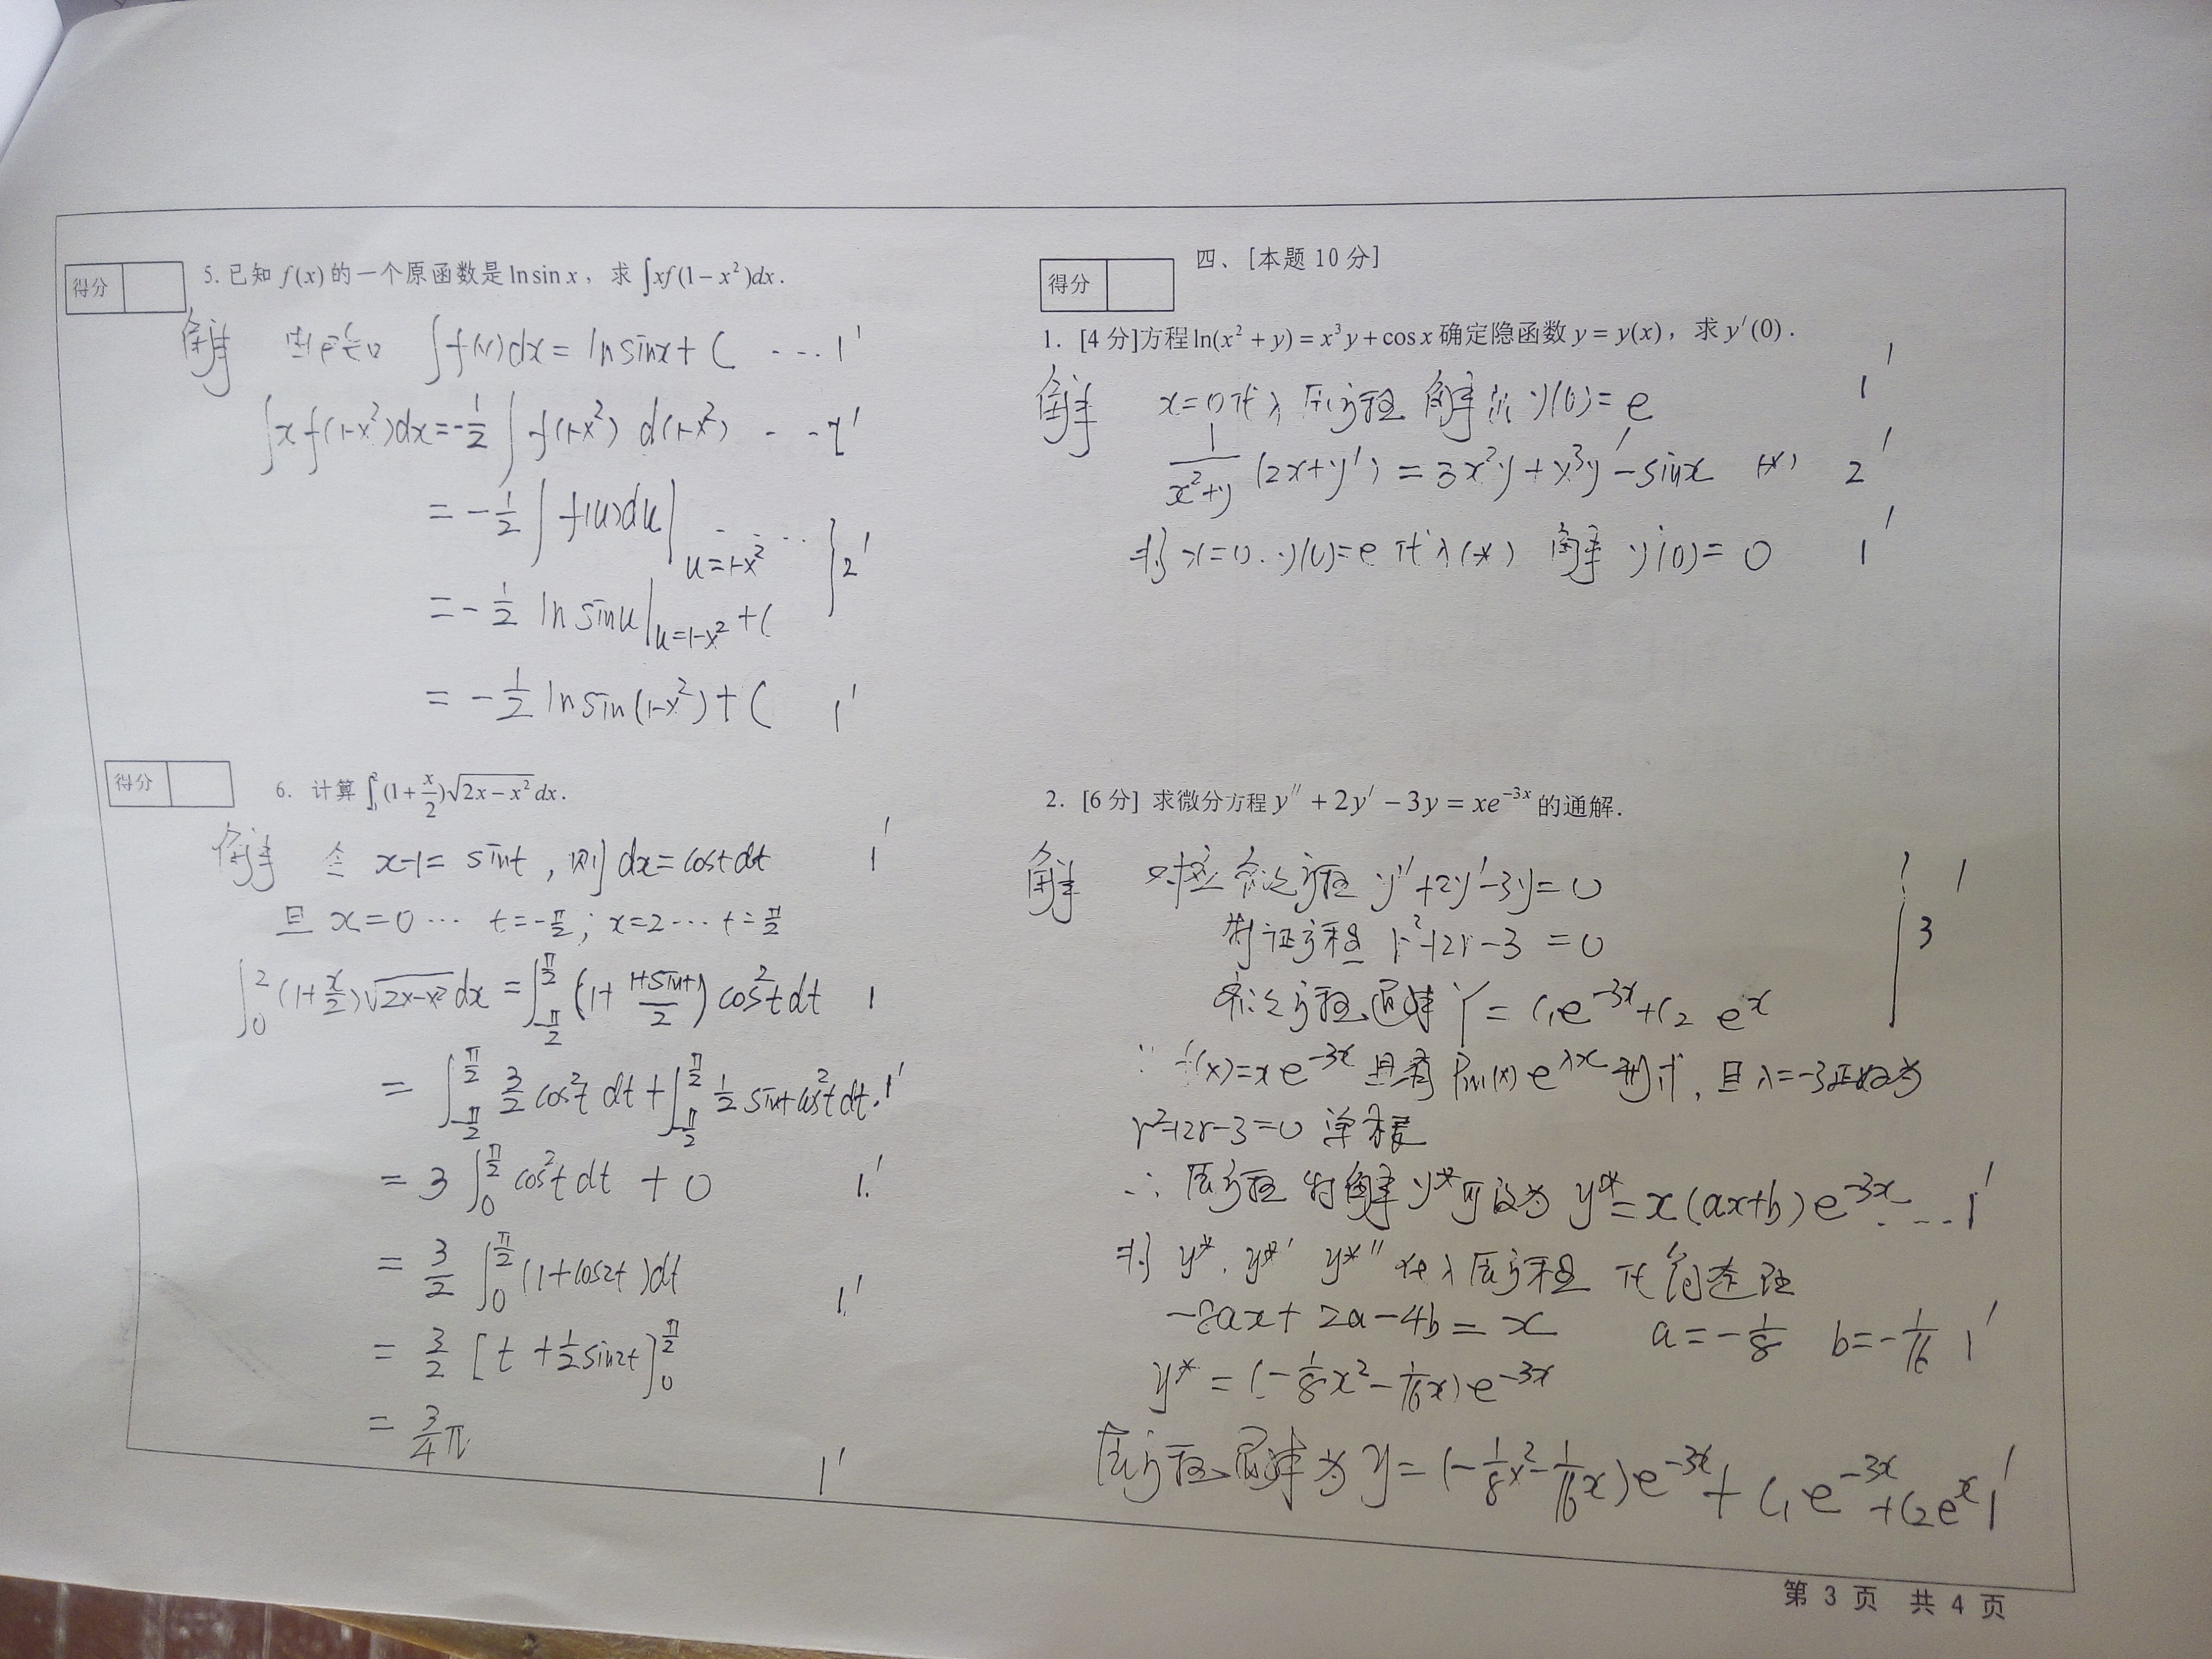 得分
5. 已知 f(x) 的一个原函数是 ln sin x，求 ∫xf(1-x²)dx.
解 ∫f(x)dx = ln sinx + C ---1'
∫xf(1-x²)dx = -1/2 ∫f(1-x²) d(1-x²) --1'
= -1/2 ∫f(u)du|u=1-x² ... 2'
= -1/2 ln sinu|u=1-x² + C
= -1/2 ln sin(1-x²) + C 1'
得分
6. 计算 ∫(1+x/2)√(2x-x²)dx.
解 令 x-1 = sint，则 dx = costdt 1'
且 x=0 ... t=-π/2; x=2 ... t=π/2
∫₀²(1+x/2)√(2x-x²)dx = ∫_{-π/2}^{π/2}(1+(1+sint)/2)cos²tdt 1
= ∫_{-π/2}^{π/2} 3/2 cos²t dt + ∫_{-π/2}^{π/2} 1/2 sint cos²t dt. 1'
= 3∫₀^{π/2} cos²t dt + 0 1.'
= 3/2 ∫₀^{π/2}(1+cos2t)dt 1.'
= 3/2 [t + 1/2 sin2t]₀^{π/2}
= 3/4 π 1'
得分
四、[本题 10 分]
1. [4 分]方程 ln(x²+y) = x³y + cos x 确定隐函数 y = y(x)，求 y′(0).
解 x=0代入原方程 解得 y(0)=e 1'
1/(x²+y) (2x+y') = 3x²y + x³y' - sinx (*) 2'
将 x=0. y(0)=e 代入(*) 解 y'(0)=0 1'
2. [6 分] 求微分方程 y″ + 2y′ - 3y = xe^{-3x} 的通解.
解 对应齐次方程 y''+2y'-3y=0 1
特征方程 r²+2r-3=0 3
齐次方程通解 Y = C₁e^{-3x}+C₂ e^x
∵ f(x)=xe^{-3x} 具有 Pm(x)e^{λx} 形式, 且 λ=-3正好为
r²+2r-3=0 单根
∴ 原方程 特解 y*可设为 y*=x(ax+b)e^{-3x} ...1'
将 y*, y*' y*'' 代入原方程 化简整理
-8ax+2a-4b = x a=-1/8 b=-1/16 1'
y* = (-1/8 x² - 1/16 x)e^{-3x}
原方程通解为 y = (-1/8 x² - 1/16 x)e^{-3x} + C₁e^{-3x} + C₂e^x 1'
第 3 页 共 4 页